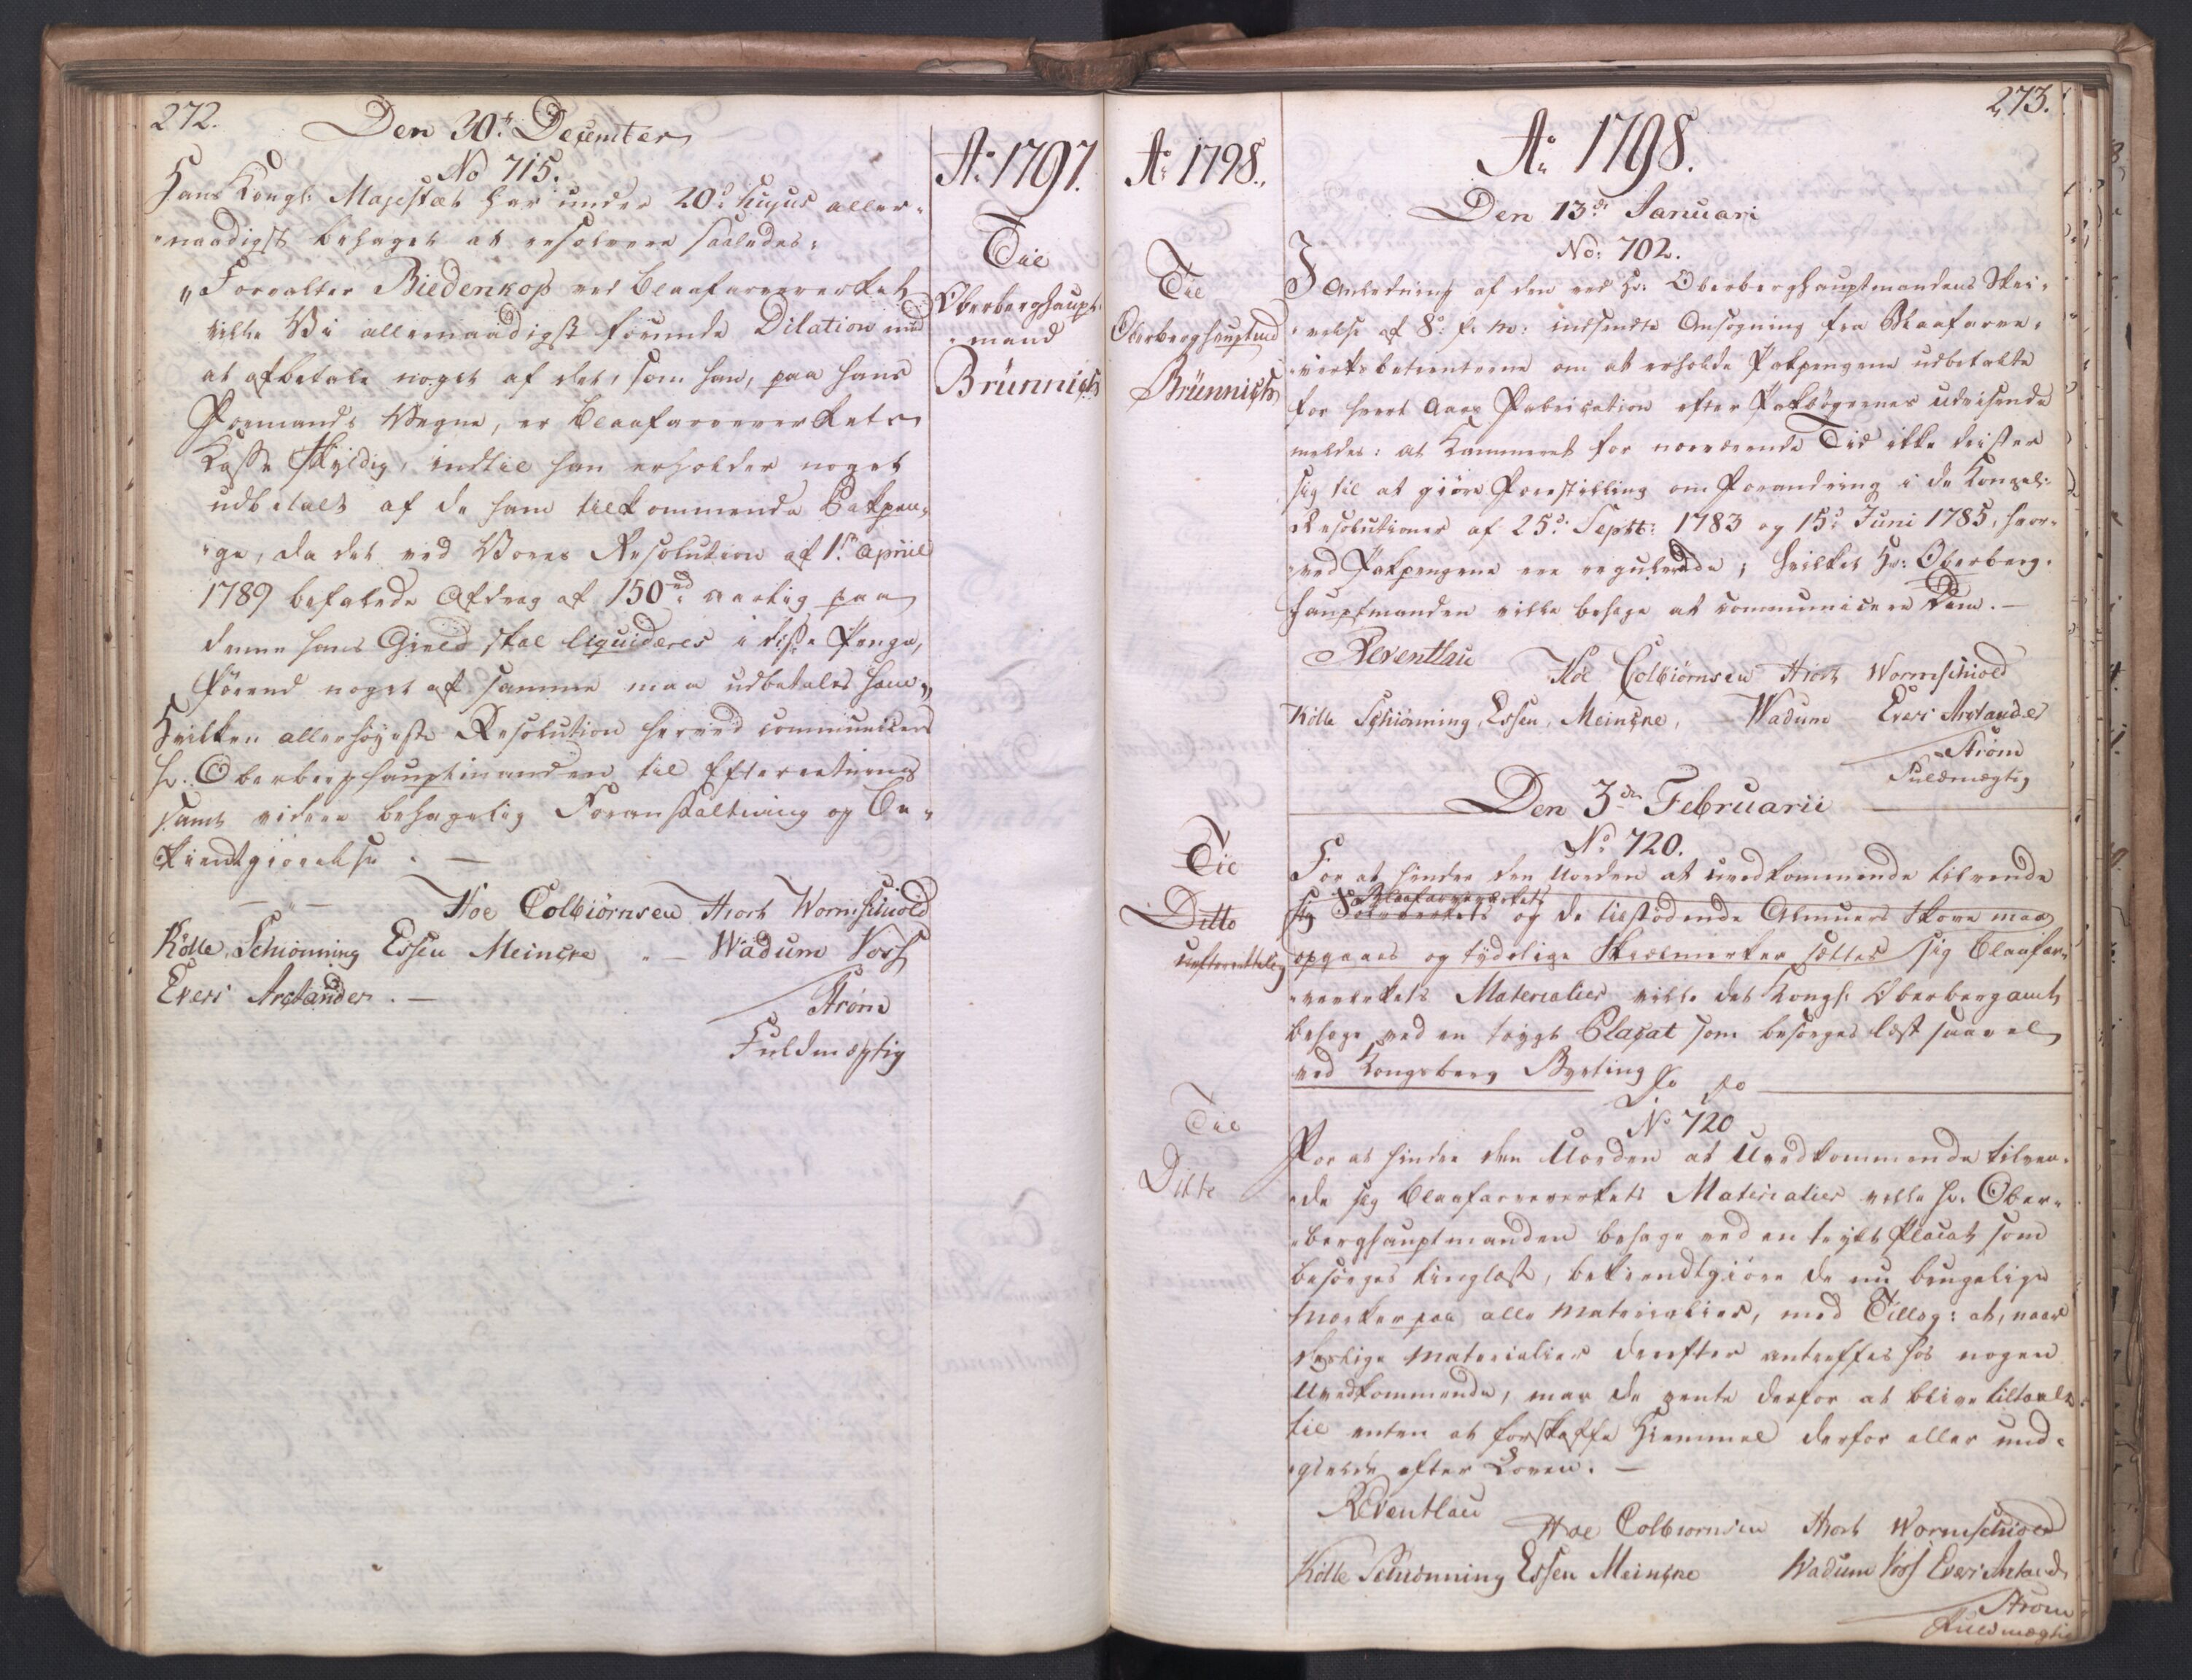 272.
Den 30te December
No 715.
Hans Kongl: Majestæt har under 20de hujus aller-
naadigst behaget at resolvere saaledes:
"Forvalter Biedenkop ved Blaafarveverket
ville Vi allernaadigst forunde Dilation med
at afbetale noget af det, som han, paa hans
Formands Vegne, er Blaafarveverkets
Kasse skyldig, indtil han erholder noget
udbetalt af de ham tilkommende Pakpen-
ge, da det ved Vores Resolution af 1ste April
1789 befalede Afdrag af 150rd aarlig paa
denne hans Gield skal liquideres i disse Penge,
förend noget af samme maa udbetales ham."
Hvilken allerhöyeste Resolution herved communiceres
Hr. Oberberghauptmanden til Efterretning
samt videre behagelig Foranstaltning og Be-
kiendtgiörelse. —
Hoe Colbiörnsen Hiort Wormskiold
Kölle Schiönning Essen Meincke — Wadum Voss
Evers Arctander. —
Ström
Fuldmægtig
Ao 1797.
Til
Oberberghaupt-
mand
Brünnich
Ao 1798.
Til
Oberberghauptmd
Brünnich
Til
Ditto
Til
Ditto
273.
Ao 1798.
Den 13de Januari
No: 702.
I Anledning af den ved Hr: Oberberghauptmandens Skri-
velse af 8de f: M: indsendte Ansögning fra Blaafarve-
verksbetienterne om at erholde Pakpengene udbetalte
for hvert Aars Fabrication efter Pakbögernes Udvisende
meldes: at Kammeret for nærværende Tid ikke drister
sig til at giöre Forestilling om Forandring i de Kongel:
Resolutioner af 25de Septt: 1783 og 15de Juni 1785, hvor-
ved Pakpengene ere regulerede; hvilket Hr: Oberberg-
hauptmanden ville behage at communicere Dem. —
Reventlau
Hoe Colbiörnsen Hiort Wormskiold
Kölle Schiönning, Essen, Meincke, — Wadum Evers Arctander
Ström
Fuldmægtig
Den 3de Februarii
No 720.
For at hindre den Uorden at uvedkommende tilvende
sig Blaafarveverkets og de tilstödende Almuers Skove maa
opgaaes og tydelige Skielmerker sættes sig Blaafar-
veverkets Materialier ville det Kongl: Oberbergamt
behage ved en trykt Placat som besörges læst saavel
ved Kongsberg Byeting
Do Do
No 720
For at hindre den Uorden at Uvedkommende tilven-
de sig Blaafarveverkets Materialier ville Hr. Ober-
berghauptmanden behage ved en trykt Placat som
besörges tinglæst, bekiendtgiöre de nu brugelige
Merker paa alle Materialier, med Tillæg: at, naar
deslige Materialier derefter antreffes hos nogen
Uvedkommende, maa de vente derfor at blive tiltalt
til enten at forskaffe Hiemmel derfor eller und-
gielde efter Loven. —
Reventlau
Hoe Colbiörnsen Hiort Wormskiold
Kölle Schiönning Essen Meincke Wadum Voss Evers Arctand.
Ström
Fuldmægtig